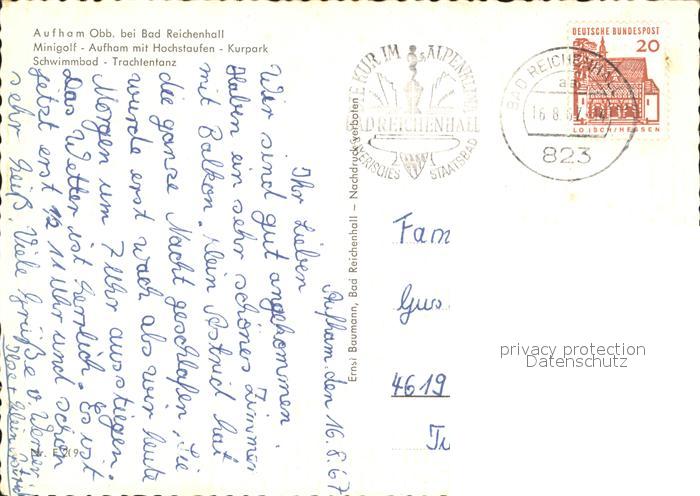 Aufham Obb. bei Bad Reichenhall
Minigolf - Aufham mit Hochstaufen - Kurpark
Schwimmbad - Trachtentanz
Aufham, den 16.8.67
Ihr Lieben
Wir sind gut angekommen.
Haben ein sehr schönes Zimmer
mit Balkon. Klein Astrid hat
die ganze Nacht geschlafen. Sie
wurde erst wach als wir heute
Morgen um 7 Uhr ausstiegen.
Das Wetter ist herrlich. Es ist
jetzt erst 11 Uhr und schon
sehr heiß. Viele Grüße v. Werner
Ilse + Klein Astrid
Ernst Baumann, Bad Reichenhall - Nachdruck verboten
KUR IM ALPENKLIMA
BAD REICHENHALL
BAYERISCHES STAATSBAD
BAD REICHENHALL
16.8.67
823
DEUTSCHE BUNDESPOST
20
LORSCH/HESSEN
Fam
Gus
4619
privacy protection
Datenschutz